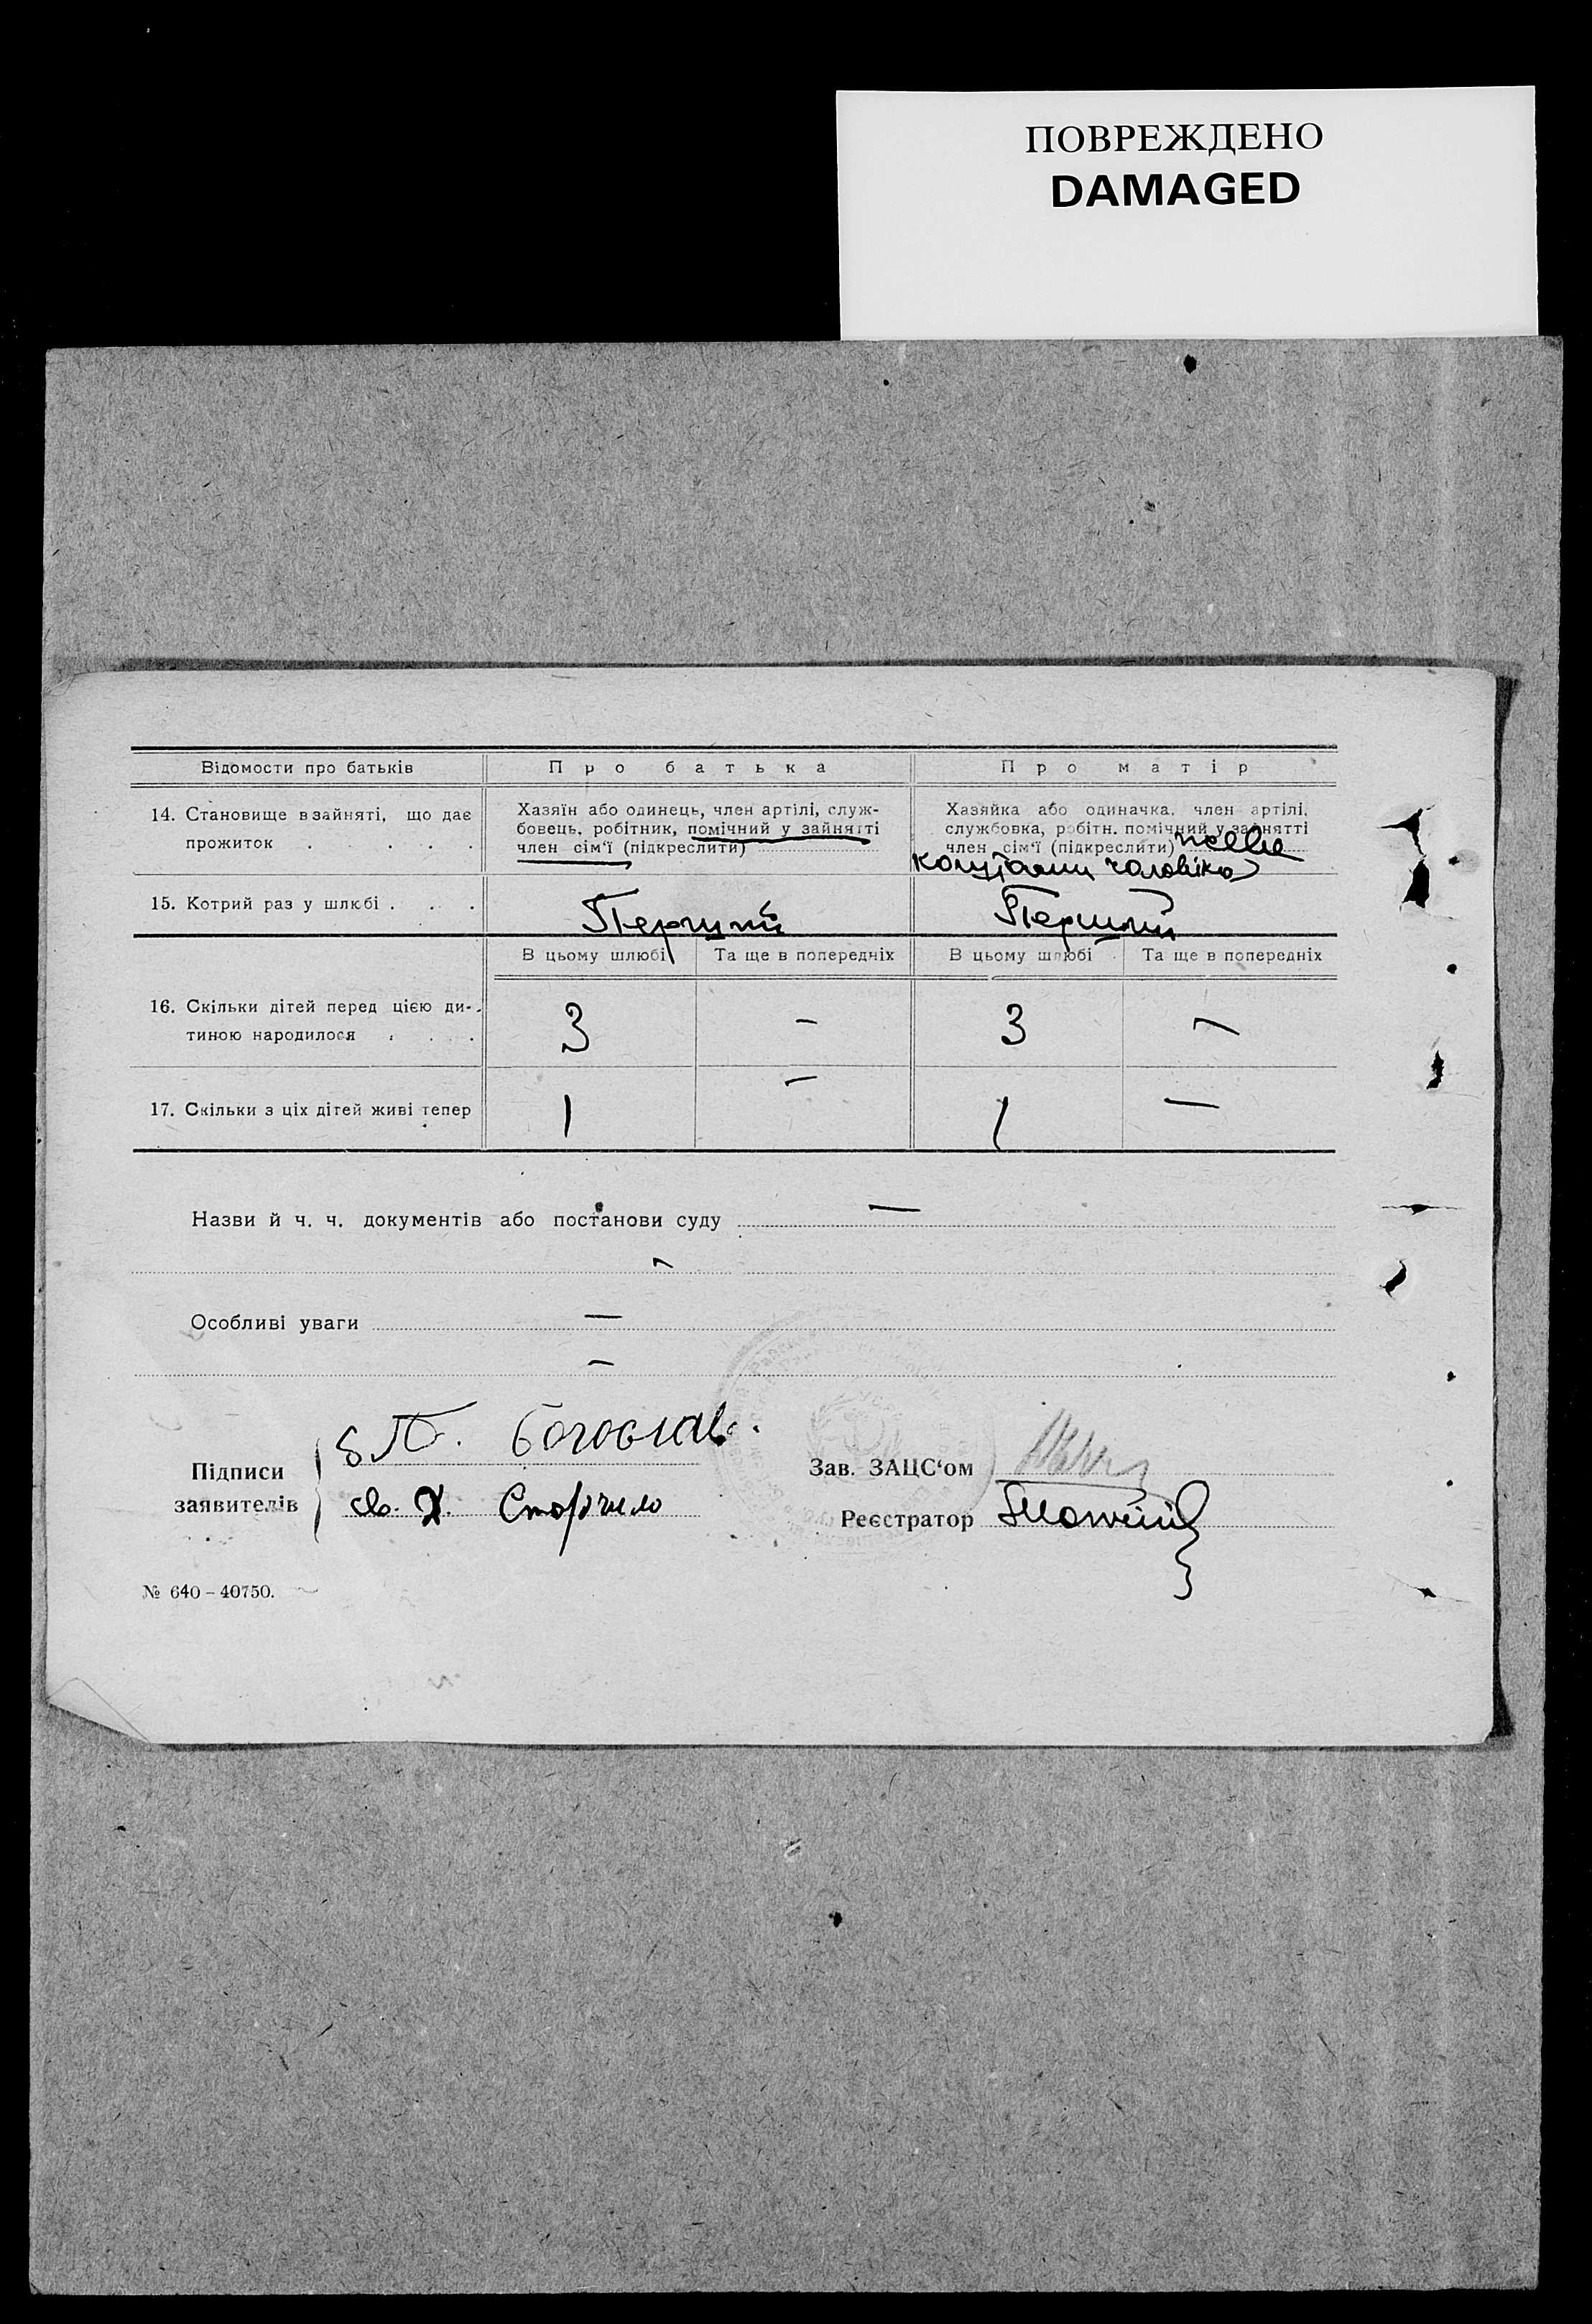 ПОВРЕЖДЕНО
DAMAGED
Відомости про батьків
Про батька
Про матір
14. Становище в зайняті, що дає
прожиток . . . .
Хазяїн або одинець, член артілі, служ-
бовець, робітник, помічний у зайнятті
член сім'ї (підкреслити)
Хазяйка або одиначка, член артілі,
службовка, робітн. помічний у зайнятті
член сім'ї (підкреслити) живе
коштами чоловіка
15. Котрий раз у шлюбі . . .
Перший
Перший
В цьому шлюбі
Та ще в попередніх
В цьому шлюбі
Та ще в попередніх
16. Скільки дітей перед цією ди-
тиною народилося . . .
3
–
3
–
17. Скільки з ціх дітей живі тепер
1
–
1
–
Назви й ч. ч. документів або постанови суду —
–
Особливі уваги —
–
Підписи
заявителів
б П. Богослав.
св. Х. Сторчило
Зав. ЗАЦС'ом
Реєстратор
№ 640–40750.